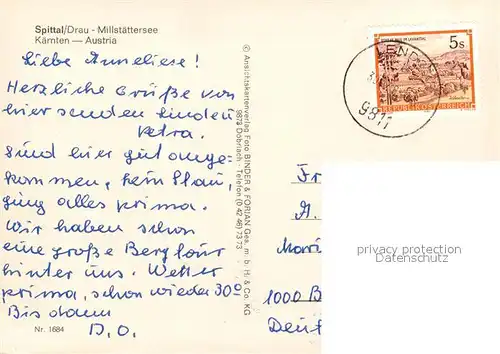 Spittal/Drau - Millstättersee
Kärnten — Austria
Liebe Anneliese!
Herzliche Grüße von
hier senden
Petra.
Sind hier gut ange-
kommen, kein Stau,
ging alles prima.
Wir haben schon
eine große Bergtour
hinter uns. Wetter
prima, schon wieder 30°
Bis dann
D.O.
Nr. 1684
© Ansichtskartenverlag Foto BINDER & FORIAN Ges. m. b. H. & Co. KG
9873 Döbriach - Telefon (0 42 46) 73 73
5s
REPUBLIK ÖSTERREICH
9811
Fr
A.
1000 B
privacy protection
VERANSICHTSKARTEN